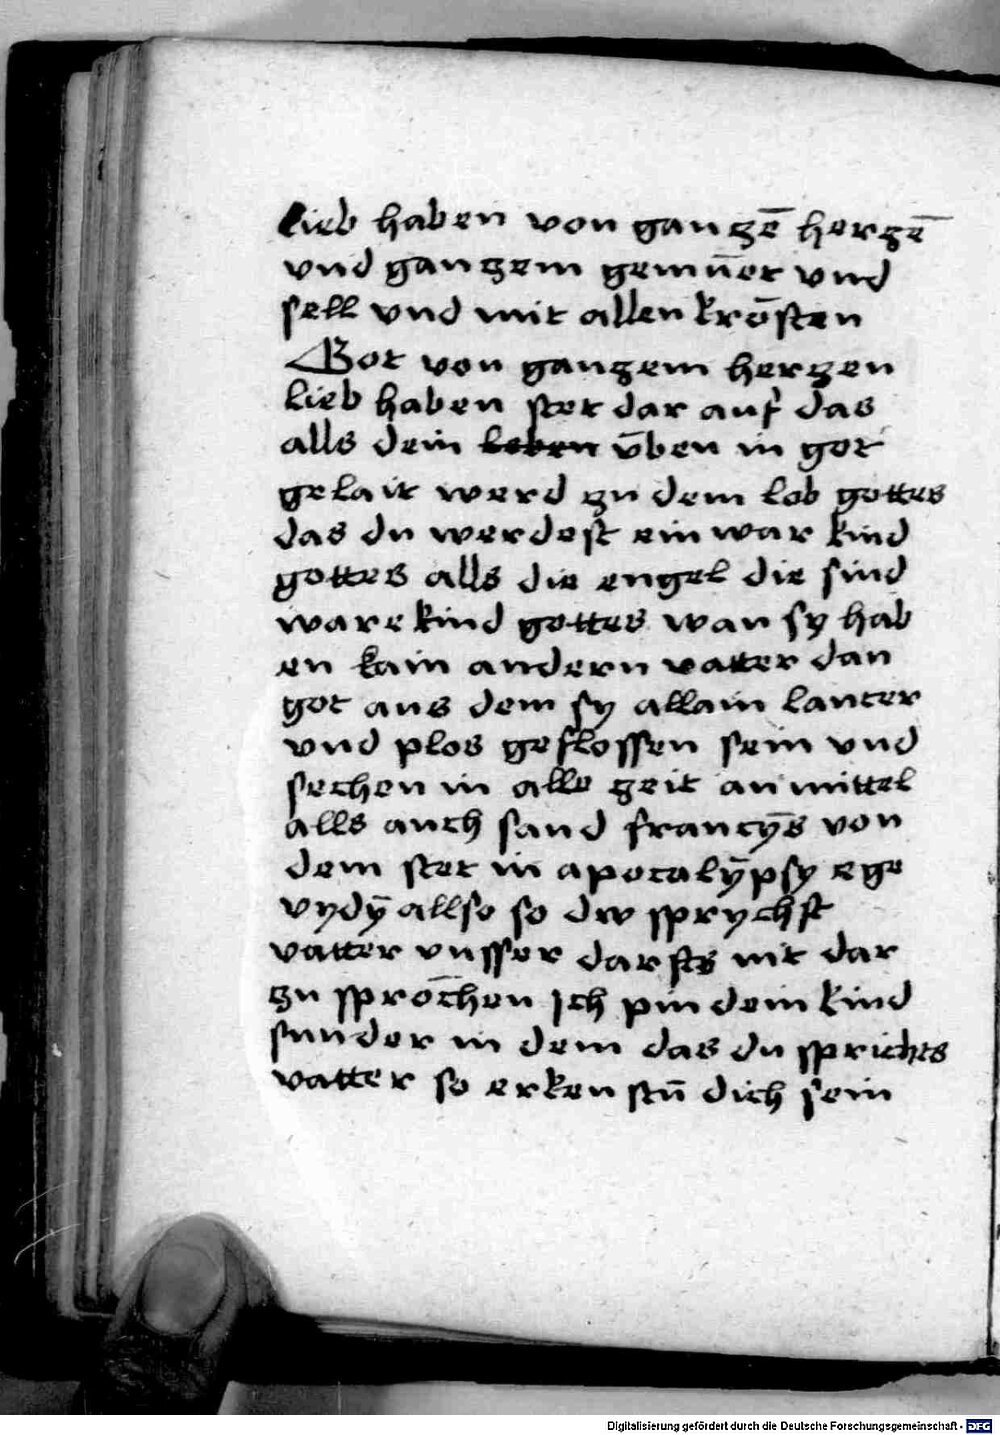 lieb haben von ganczē herczē
vnd ganczem gemūet vnd
sell vnd mit allen krōften
Got von ganczem herczen
lieb haben stet dar auf das
alls dein leben v̄ben in got
gelait werd zu dem lob gottes
das du werdest ein war kind
gottes alls die engel die sind
ware kind gottes wan sy hab
en kain andern vatter dan
got aus dem sy allain lauter
vnd plos geflossen sein vnd
sechen in alle zeit an mittel
alls auch sand francȳs von
dem stet in apocalȳpsy ege
vydȳ allso so dw sprychst
vatter vnsser darfts nit dar
zu sprōchen ich pin dein kind
sunder in dem das du sprichts
vatter so erkenstū dich sein
Digitalisierung gefördert durch die Deutsche Forschungsgemeinschaft - DFG